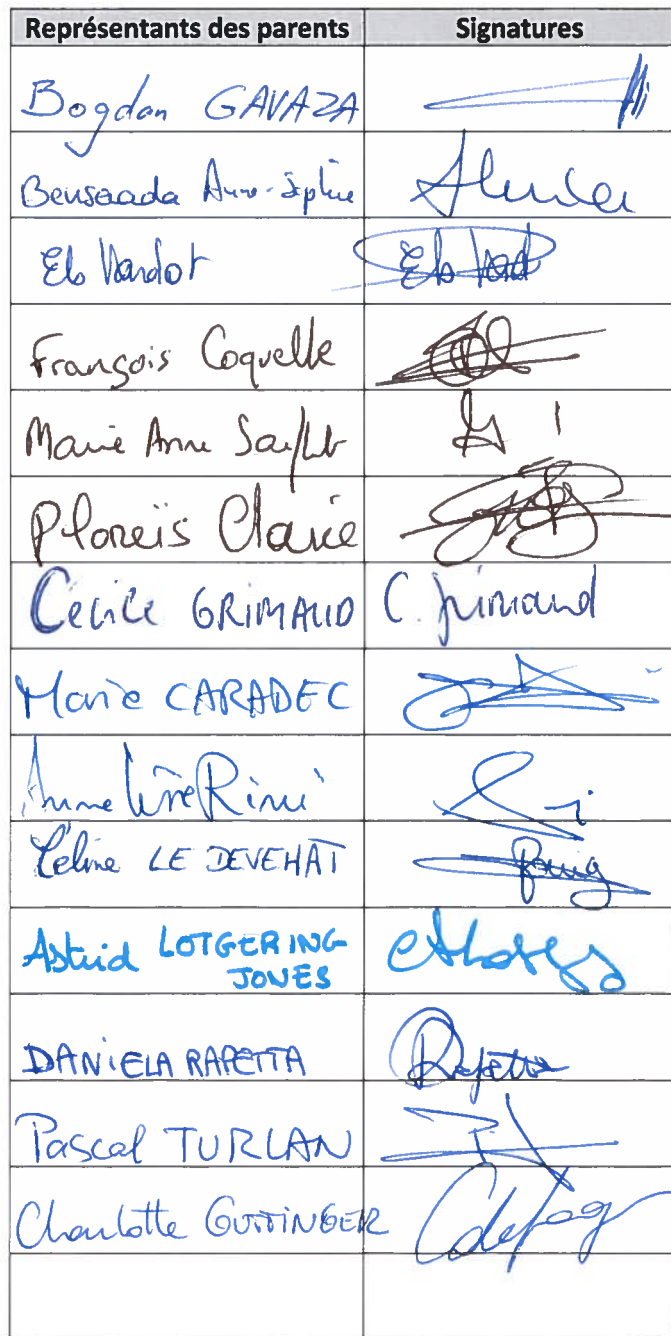 Représentants des parents Signatures
Bogdan GAVAZA
Bensaada Anne-Sophie
Elo Vardot
François Coquelle
Marie Anne
Ploneïs Claire
Cécile GRIMAUD C. Grimaud
Marie CARADEC
Anne Rini
Céline LE DEVEHAT
Astrid LOTGERING-
JONES
DANIELA RAPETTA Rapetta
Pascal TURLAN
Charlotte GUTTINGER